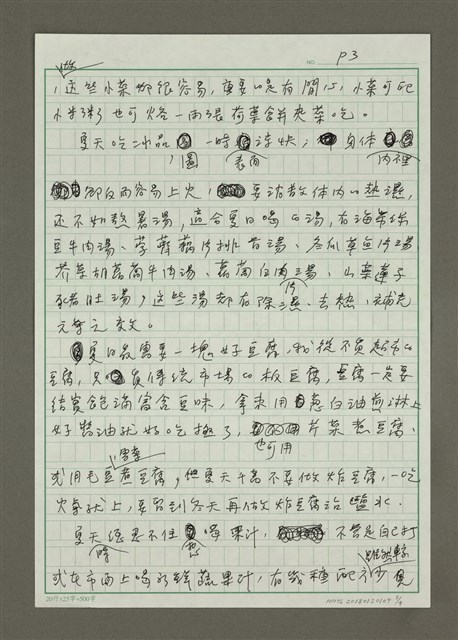 NO P3
做
，這些小菜都很容易，重要的是有閒心，小菜可配
小米粥，也可烙一兩張荷葉餅夾菜吃。
夏天吃冰品 一時涼快， 身體
，圖 表面 內裡
卻反而容易上火， 要消散体內的熱濕，
還不如熬暑湯，適合夏日喝的湯，有海帶綠
豆牛肉湯、蓮藕 片排骨湯、冬瓜草魚片湯
芥菜胡蘿蔔牛肉湯、蘿蔔白肉湯、山藥蓮子
片
豬肚湯，這些湯都有除濕、去熱、補充
元氣之效。
夏日最需要一塊好豆腐，我從不買超市的
豆腐，只 買傳統市場的板豆腐，豆腐一定要
結實飽滿富含豆味，拿來用 蔥白油煎淋上
好醬油就好吃極了， 芹菜煮豆腐、
也可用
雪菜
或用毛豆煮豆腐，但夏天千萬不要做炸豆腐，一吃
火氣就上，要留到冬天再做炸豆腐沾鹽水。
夏天總忍不住 喝果汁， 不管是自己打
時 想
雖然
或在市面上喝的新鮮蔬果汁，有幾種配
20行×25字=500字